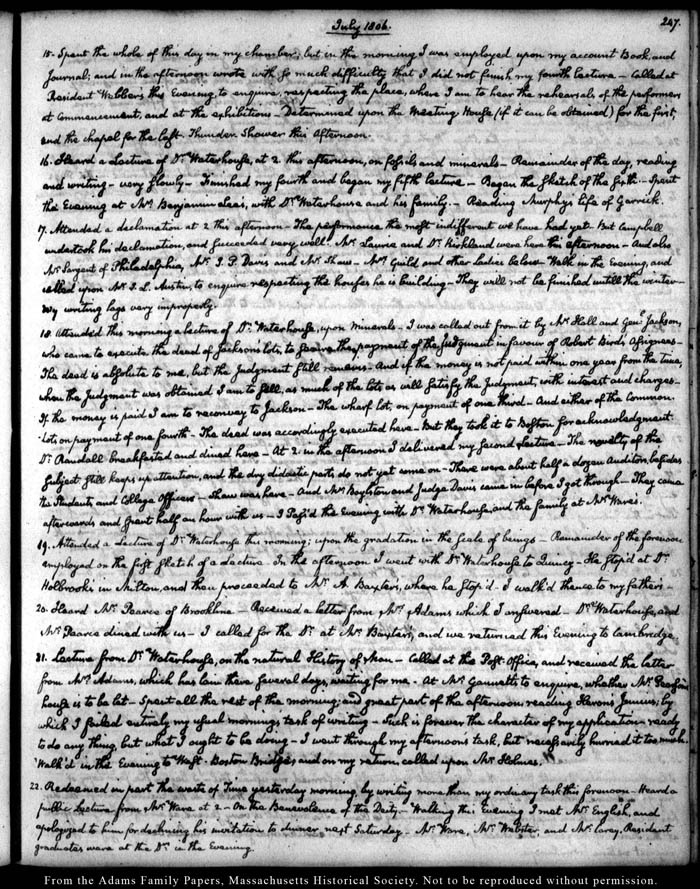 July 1806.
247.
15. Spent the whole of this day in my chamber; but in the morning I was employed upon my account Book, and
Journal; and in the afternoon wrote with so much difficulty that I did not finish my fourth Lecture — Called at
President Webber's this Evening, to enquire, respecting the place, where I am to hear the rehearsals of the performers
at Commencement, and at the exhibitions — Determined upon the Meeting House (if it can be obtained) for the first,
and the chapel for the last. Thunder Shower this Afternoon.
16. Heard a Lecture of Dr. Waterhouse, at 2 this afternoon, on fossils and minerals — Remainder of the day, reading
and writing — very slowly — Finished my fourth and began my fifth lecture — Began the sketch of the sixth — Spent
the Evening at Mrs. Benjamin Lee's, with Dr. Waterhouse and his family. — Reading Murphy's Life of Garrick.
17. Attended a declamation at 2 this afternoon — The performance the most indifferent we have had yet. But Campbell
undertook his declamation, and succeeded very well. Mr. and Dr. Kirkland were here this afternoon — And also
Mr. Sargent of Philadelphia, Mr. J. P. Davis and Mr. Shaw — Mrs. Guild and other ladies below — Walk in the Evening, and
called upon Mr. J. L. Austin, to enquire respecting the houses he is building — They will not be finished untill the winter —
My writing lags very improperly.
18. Attended this morning a lecture of Dr. Waterhouse, upon minerals — I was called out from it by Mr. Hall and Genl. Jackson,
who came to execute the deed of Jackson's lots, to secure the payment of the Judgment in favour of Robert Bird's Assignees —
The deed is absolute to me, but the Judgment still remains — And if the money is not paid within one year from the time,
when the Judgment was obtained I am to sell, as much of the lots as will satisfy the Judgment, with interest and charges —
If the money is paid I am to reconvey to Jackson — The wharf lot, on payment of one third — And either of the Common
Lots, on payment of one fourth — The deed was accordingly executed here — But they took it to Boston for acknowledgment.
Dr. Randall breakfasted and dined here — At 2 in the afternoon I delivered my second lecture — The novelty of the
subject still keeps up attention, and the dry didactic parts do not yet come on — There were about half a dozen Auditors, besides
the Students and College Officers — Shaw was here — And Mr. Boylston and Judge Davis came in before I got through — They came
afterwards and spent half an hour with us — I Pass'd the Evening with Dr. Waterhouse, and the family at Mr. Ware's.
19. Attended a Lecture of Dr. Waterhouse this morning; upon the gradation in the scale of beings — Remainder of the forenoon
employed on the first sketch of a Lecture. In the afternoon I went with Dr. Waterhouse to Quincy — He stop'd at Dr.
Holbrook's in Milton, and then proceeded to Mr. A. Baxter's, where he stop'd — I walk'd thence to my father's.
20. Heard Mr. Pearce of Brookline — Received a letter from Mrs. Adams which I answered — Dr. Waterhouse, and
Mr. Pearce dined with us — I called for the Dr. at Mr. Baxter's, and we returned this Evening to Cambridge.
21. Lecture from Dr. Waterhouse, on the natural History of Man — Called at the Post-Office, and received the letter
from Mrs. Adams, which has lain there several days, waiting for me. At Mr. Gannett's to enquire, whether Mr.
house is to be let — Spent all the rest of the morning, and great part of the afternoon, reading Junius; by
which I failed entirely my usual morning's task of writing — Such is forever the character of my application — ready
to do any thing, but what I ought to be doing — I went through my afternoon's task, but necessarily hurried it too much.
Walk'd in the Evening to West-Boston Bridge; and on my return, called upon Mr. Holmes.
22. Redeemed in part the waste of Time yesterday morning, by writing more than my ordinary task this forenoon — Heard a
public Lecture from Mr. Ware at 2 — On the Benevolence of the Deity — Walking this Evening I met Mr. English, and
apologized to him for declining his invitation to dinner next Saturday — Mr. Ware, Mr. Webster, and Mr. Carey, Resident
graduates were at the Dr. in the Evening.
From the Adams Family Papers, Massachusetts Historical Society. Not to be reproduced without permission.